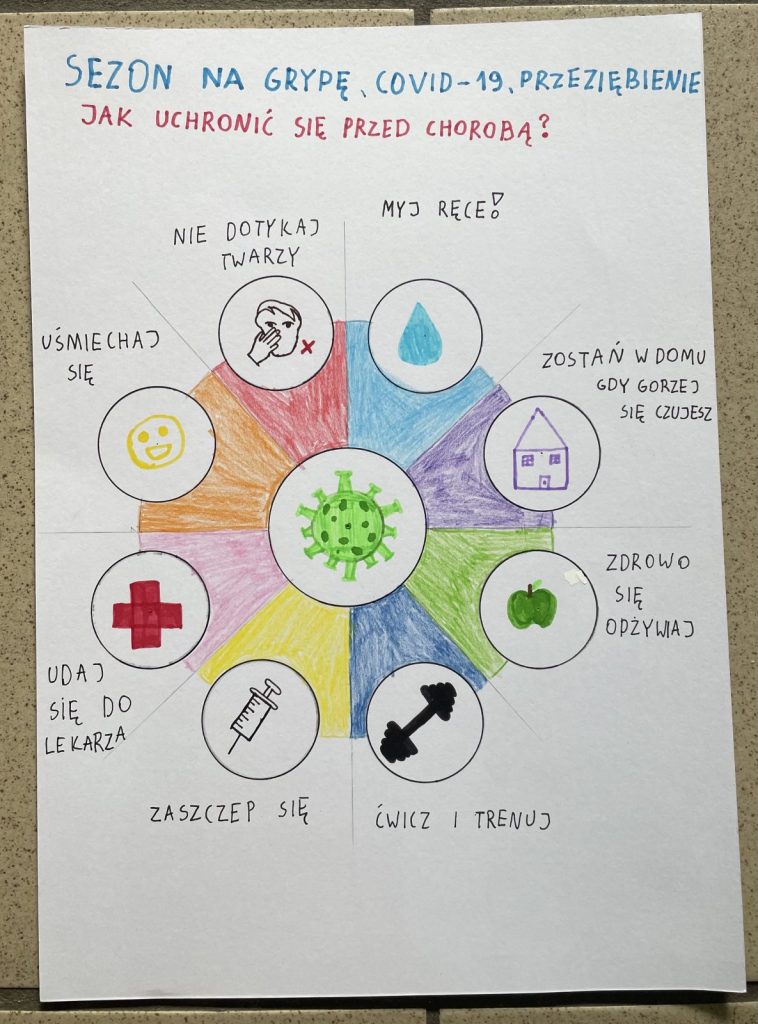 SEZON NA GRYPĘ, COVID-19, PRZEZIĘBIENIE
JAK UCHRONIĆ SIĘ PRZED CHOROBĄ?
MYJ RĘCE!
NIE DOTYKAJ
TWARZY
UŚMIECHAJ
SIĘ
ZOSTAŃ W DOMU
GDY GORZEJ
SIĘ CZUJESZ
ZDROWO
SIĘ
OPŻYWIAJ
UDAJ
SIĘ DO
LEKARZA
ZASZCZEP SIĘ
ĆWICZ I TRENUJ